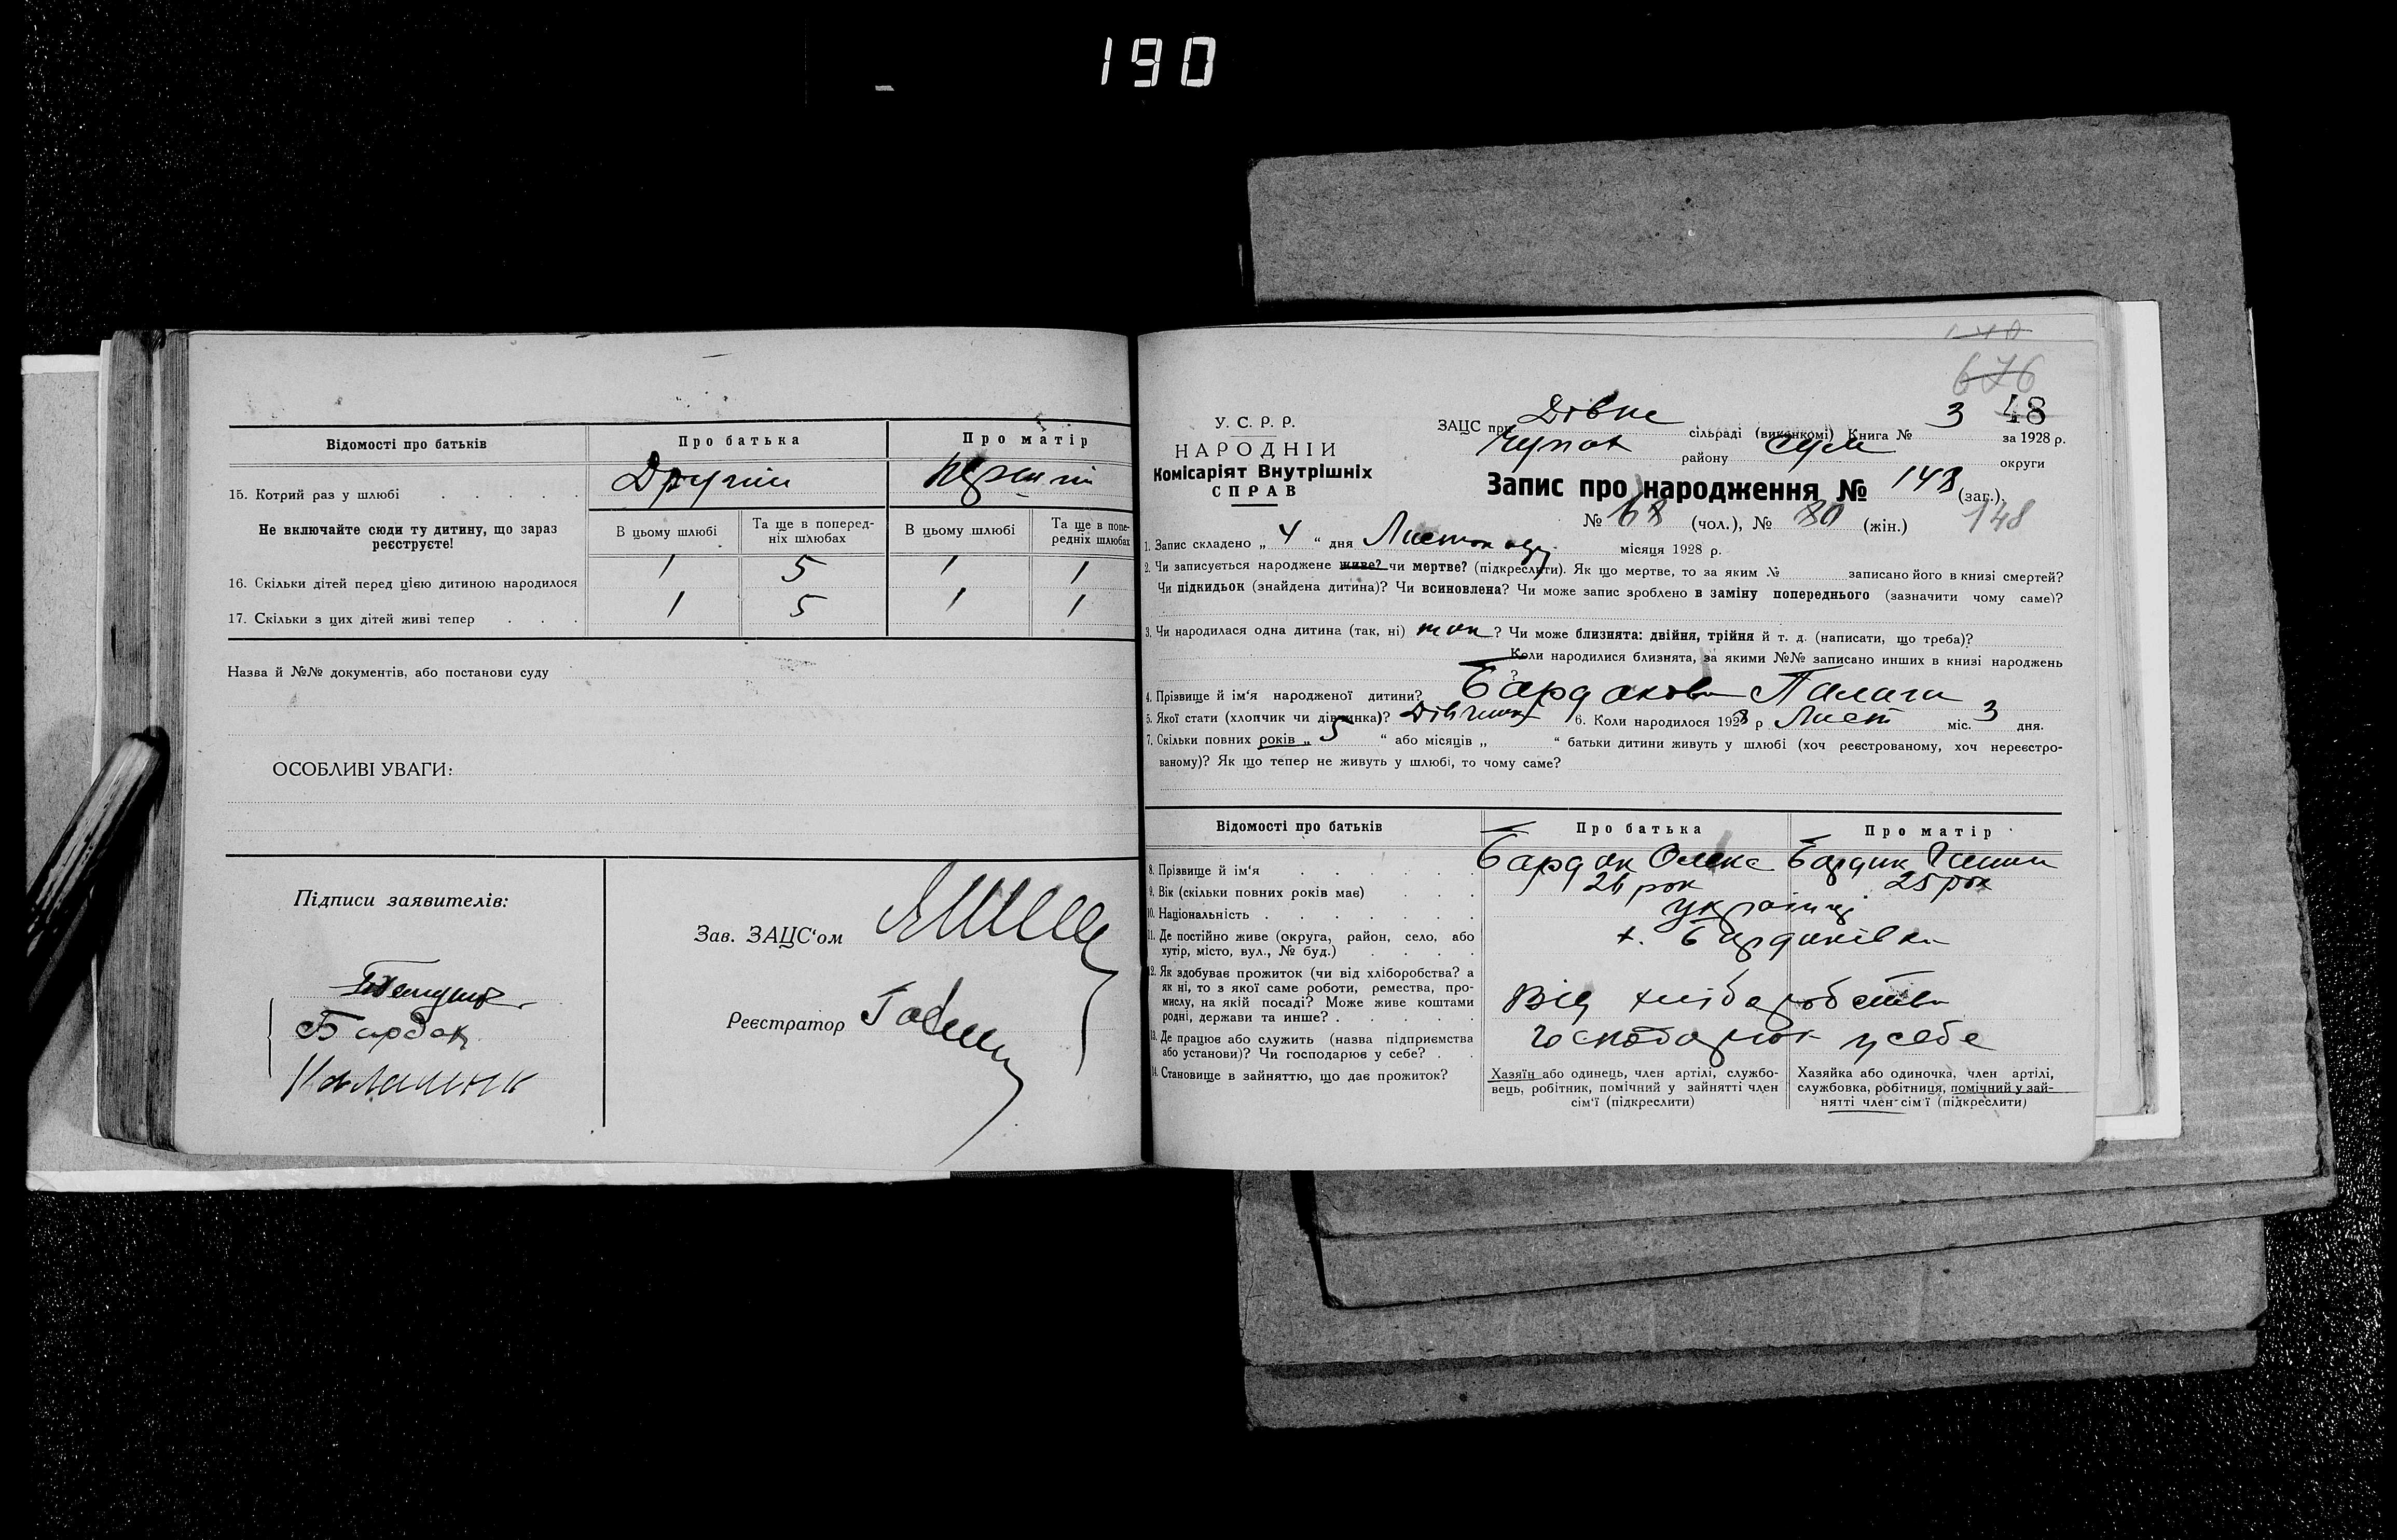 190
Відомості про батьків
Про батька
Про матір
15. Котрий раз у шлюбі . . . . .
Другий
Не включайте сюди ту дитину, що зараз реєструєте!
В цьому шлюбі
Та ще в поперед-
ніх шлюбах
В цьому шлюбі
Та ще в попе-
редніх шлюбах
16. Скільки дітей перед цією дитиною народилося
1 5 1 1
17. Скільки з цих дітей живі тепер . . .
1 5 1 1
Назва й №№ документів, або постанови суду
ОСОБЛИВІ УВАГИ:
Підписи заявителів:
Бардак
Зав. ЗАЦС'ом
Реєстратор
676
48
У. С. Р. Р.
НАРОДНІЙ
Комісаріят Внутрішніх
СПРАВ
ЗАЦС при сільраді (виконкомі) Книга № 3 за 1928 р.
Чупах району Сум округи
Запис про народження № 148 (заг.).
№ 68 (чол.), № 80 (жін.) 148
1. Запис складено „ 4 “ дня Листопаду місяця 1928 р.
2. Чи записується народжене живе? чи мертве? (підкреслити). Як що мертве, то за яким № записано його в книзі смертей?
Чи підкидьок (знайдена дитина)? Чи всиновлена? Чи може запис зроблено в заміну попереднього (зазначити чому саме)?
3. Чи народилася одна дитина (так, ні) так ? Чи може близнята: двійня, трійня й т. д. (написати, що треба)?
Коли народилися близнята, за якими №№ записано инших в книзі народжень
?
4. Прізвище й ім'я народженої дитини? Бардакова Палага
5. Якої стати (хлопчик чи дівчинка)? Дівчинка 6. Коли народилося 1928 р Лист міс. 3 дня.
7. Скільки повних років „ 5 “ або місяців „ “ батьки дитини живуть у шлюбі (хоч реєстрованому, хоч нереєстро-
ваному)? Як що тепер не живуть у шлюбі, то чому саме?
Відомості про батьків
Про батька
Про матір
8. Прізвище й ім'я . . . . . .
Бардак Олекс
Бардак
9. Вік (скільки повних років має) . . .
рок
25 рок
10. Національність . . . . . . .
українці
11. Де постійно живе (округа, район, село, або
хутір, місто, вул., № буд.) . . . .
х. Бардаківка
12. Як здобуває прожиток (чи від хліборобства? а
як ні, то з якої саме роботи, ремества, про-
мислу, на якій посаді? Може живе коштами
родні, держави та инше? . . . . .
Від хліборобства
13. Де працює або служить (назва підприємства
або установи)? Чи господарює у себе? . .
господарює у себе
14. Становище в зайняттю, що дає прожиток?
Хазяїн або одинець, член артілі, службо-
вець, робітник, помічний у зайнятті член
сім'ї (підкреслити)
Хазяйка або одиночка, член артілі,
службовка, робітниця, помічний у зай-
нятті член сім'ї (підкреслити)